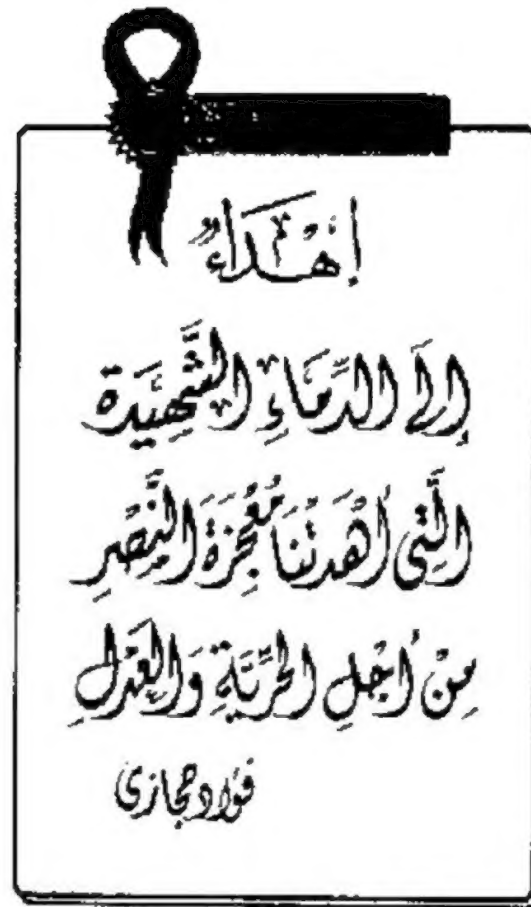 إهداء
إلى الدماء الشهيدة
التى أهدتنا معجزة النصر
من أجل الحرية والعدل
فؤاد حجازى